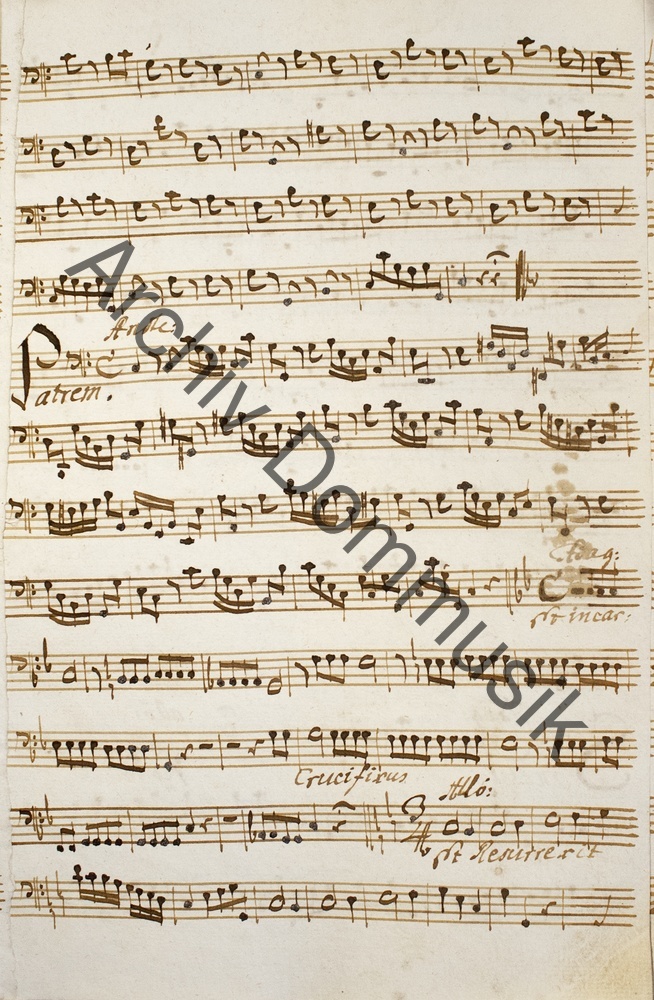 Andte:
Patrem.
Adag:
Et incar:
Crucifixus
Allo:
3
4
Et Resurrexit
Archiv Dommusik